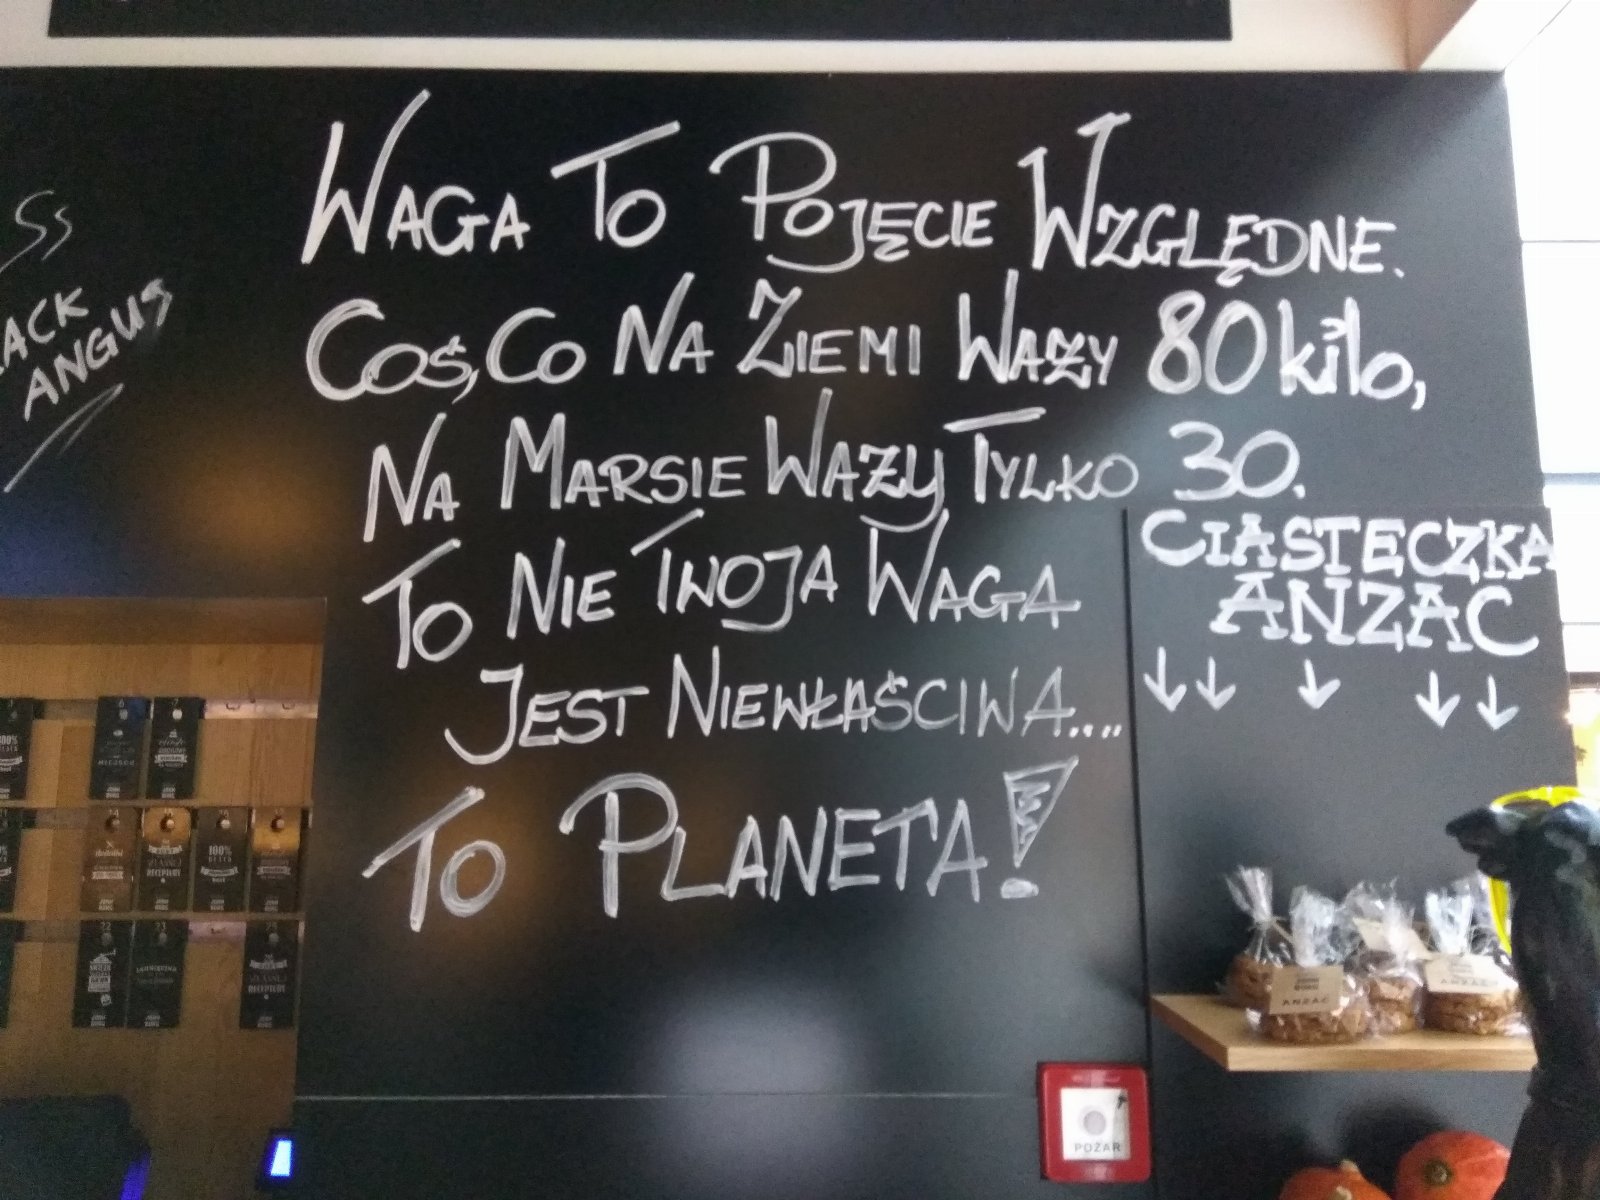 WAGA TO POJĘCIE WZGLĘDNE.
COŚ, CO NA ZIEMI WAŻY 80 kilo,
NA MARSIE WAŻY TYLKO 30.
TO NIE TWOJA WAGA
JEST NIEWŁAŚCIWA....
TO PLANETA!
CIASTECZKA
ANZAC
ANGUS
100%
RECEPTURY
100%
RECEPTURY
ANZAC
POŻAR